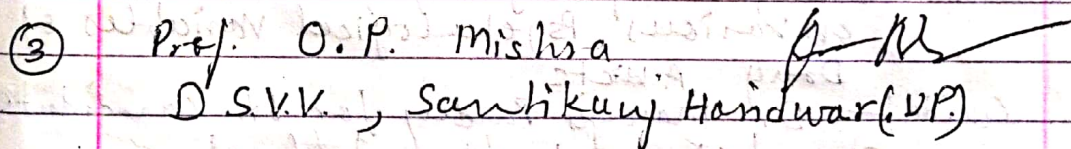 ③ Prof. O.P. Mishra
D.S.V.V., Santikunj Haridwar (U.P.)